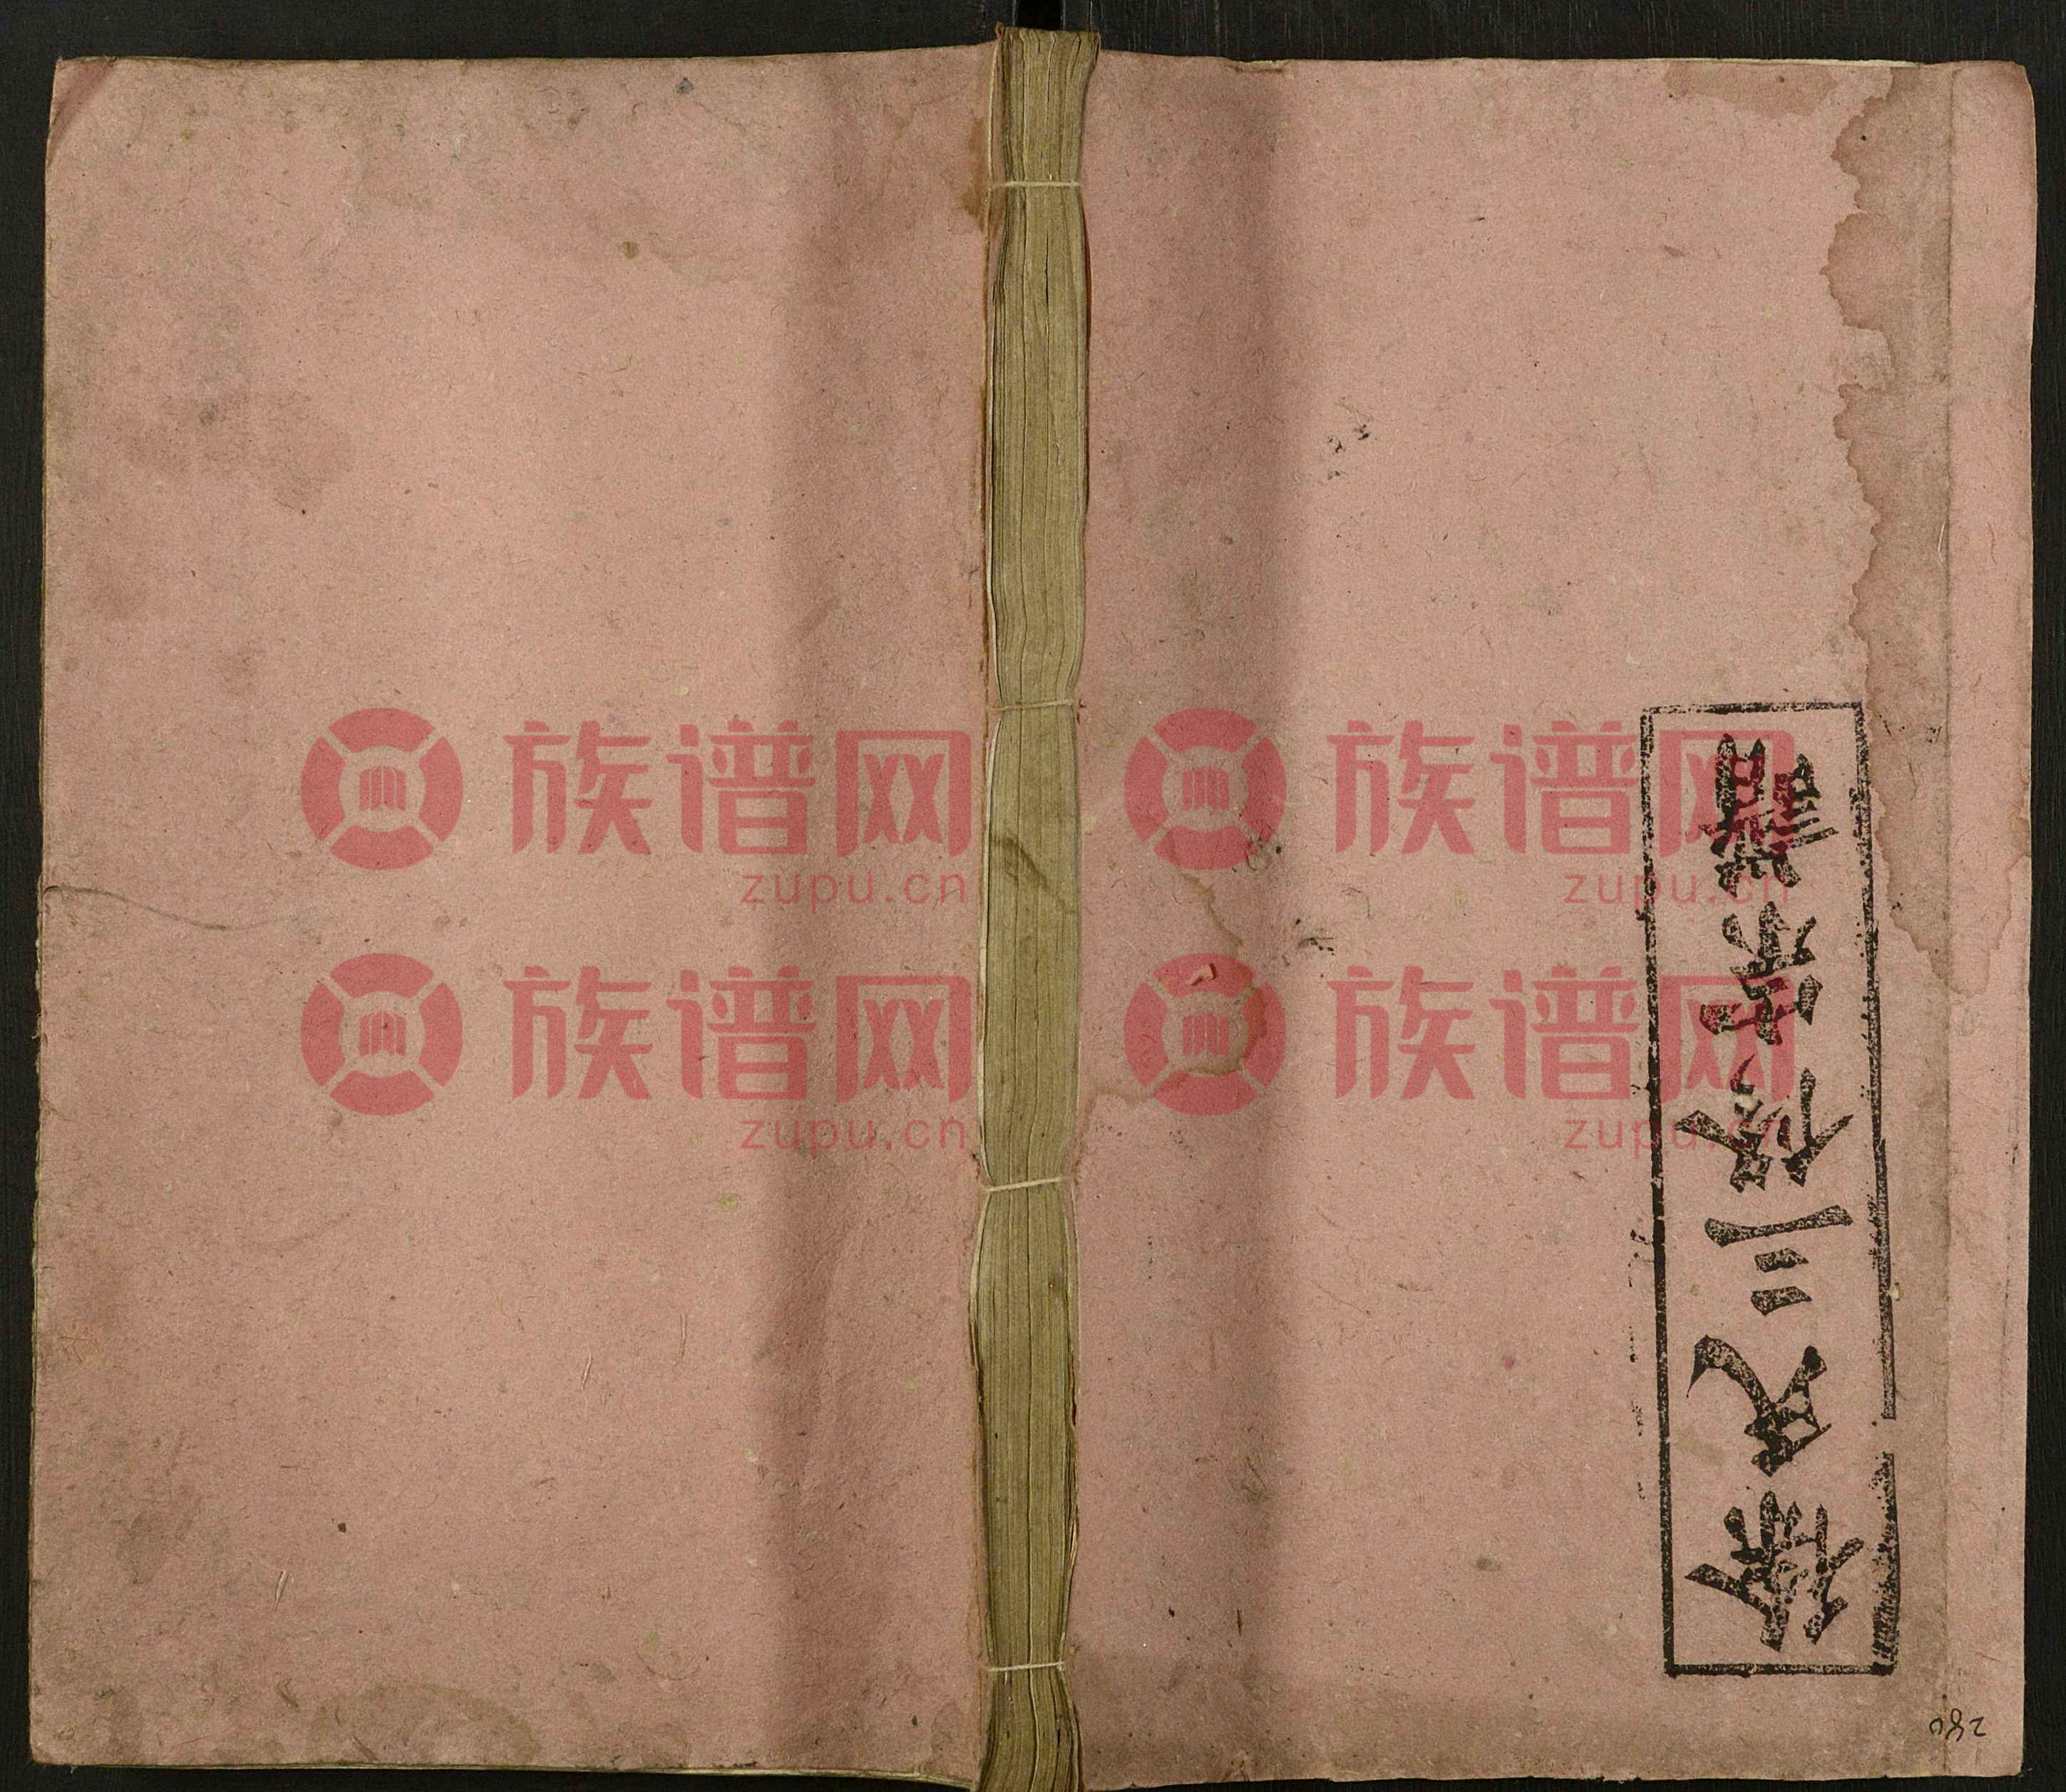 氏三修族譜
280
族谱网
zupu.cn
族谱网
zupu.cn
族谱网
zupu.cn
族谱网
zupu.cn